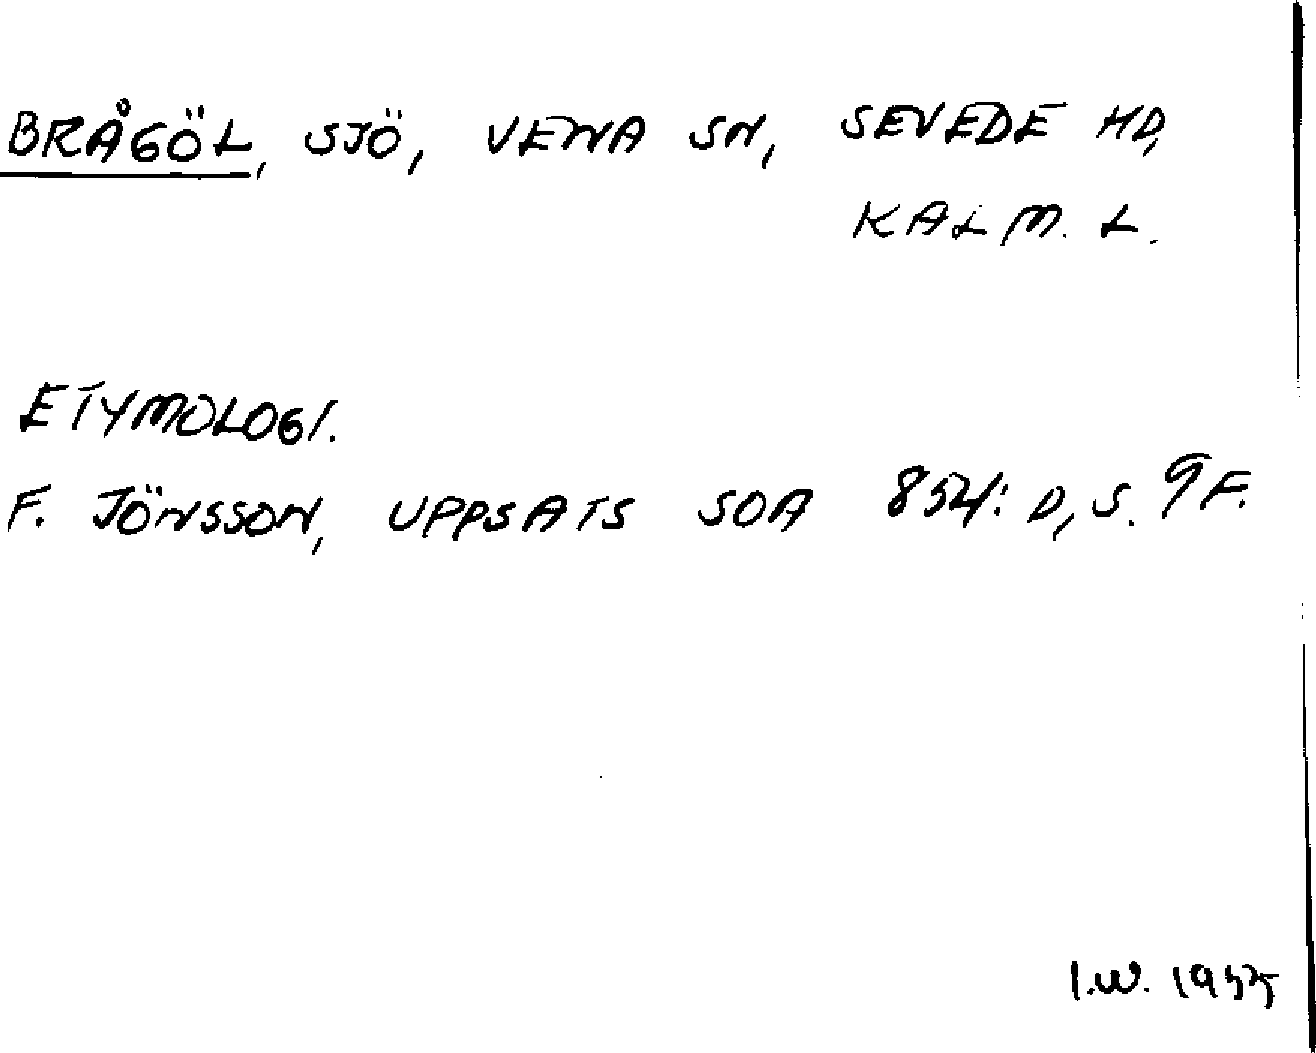 BRÅGÖL, SJÖ, VENA SN, SEVEDE HD,
KALM. L.
ETYMOLOGI.
F. JÖNSSON, UPPSATS SOA 854: D, S. 9 F.
I.W. 1955